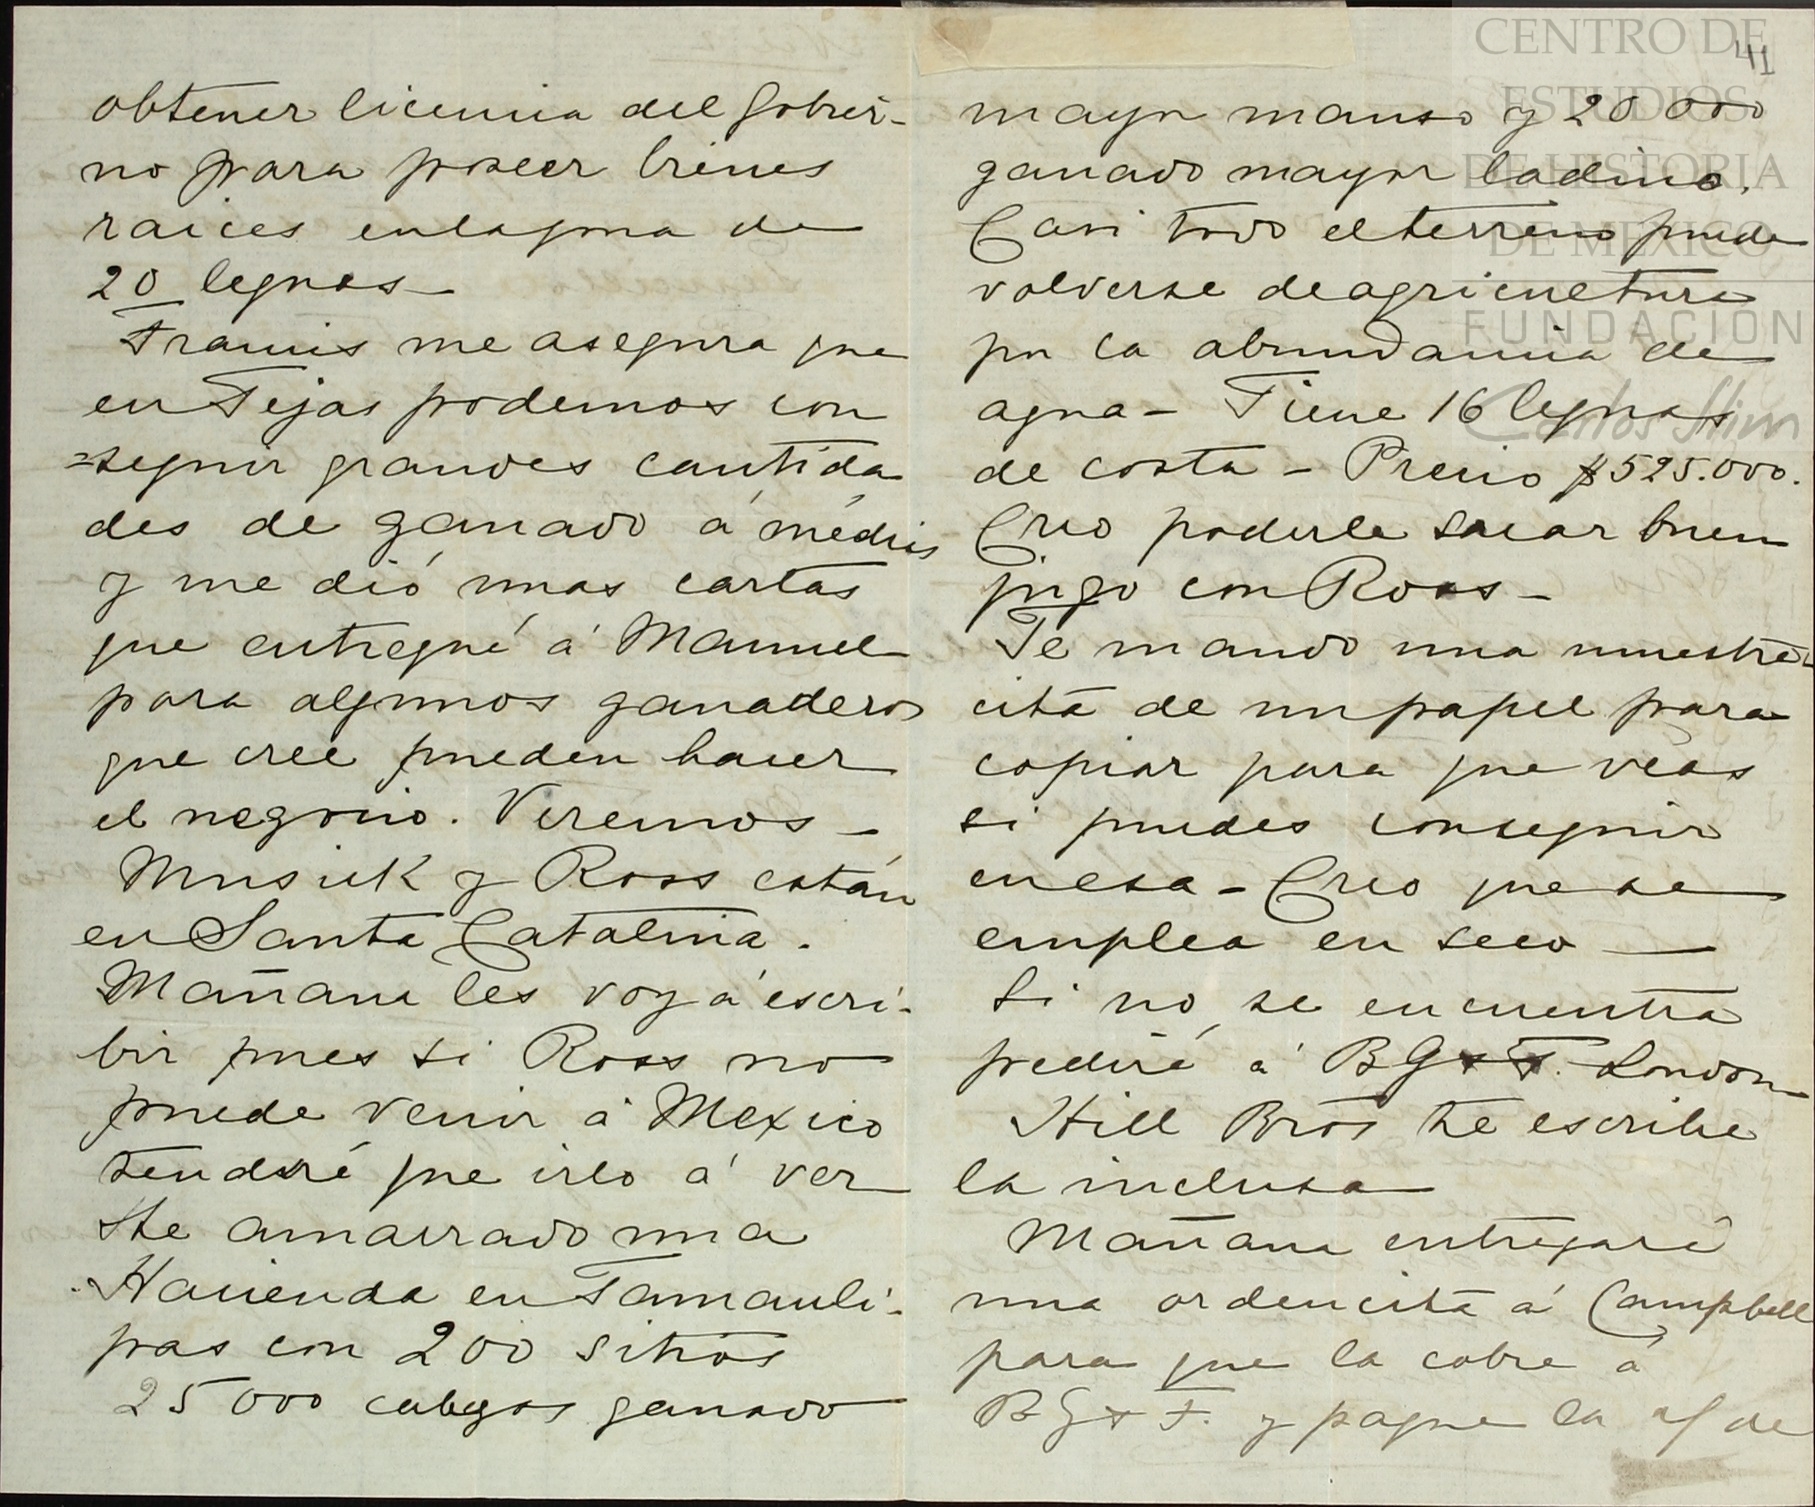 obtener licencia del Gobier-
no para poseer bienes
raices en la zona de
20 leguas—
Francis me asegura que
en Tejas podemos con
=seguir grandes cantida
des de ganado á médias
y me dió unas cartas
que entregué á Manuel
para algunos ganaderos
que cree pueden hacer
el negocio. Veremos—
Musick y Ross están
en Santa Catalina.
Mañana les voy á escri-
bir pues si Ross no
puede venir á Mexico
tendré que irlo á ver
He amarrado una
Hacienda en Tamauli-
pas con 200 sitios
25000 cabezas ganado
41
mayor manso y 20000
ganado mayor ladino.
Casi todo el terreno puede
volverse de agricultura
por la abundancia de
agua— Tiene 16 leguas
de costa— Precio $525.000.
Creo poderle sacar buen
jugo con Ross—
Te mando una muestre-
cita de un papel para
copiar para que veas
si puedes conseguir
en esa— Creo que se
emplea en seco—
Si no se encuentra
pediré á BG & F. London
Hill Bros te escribe
la inclusa
Mañana entregaré
una ordencita á Campbell
para que la cobre á
BG & F. y pague la of de
CENTRO DE
ESTUDIOS
DE HISTORIA
DE MÉXICO
FUNDACIÓN
Carlos Slim